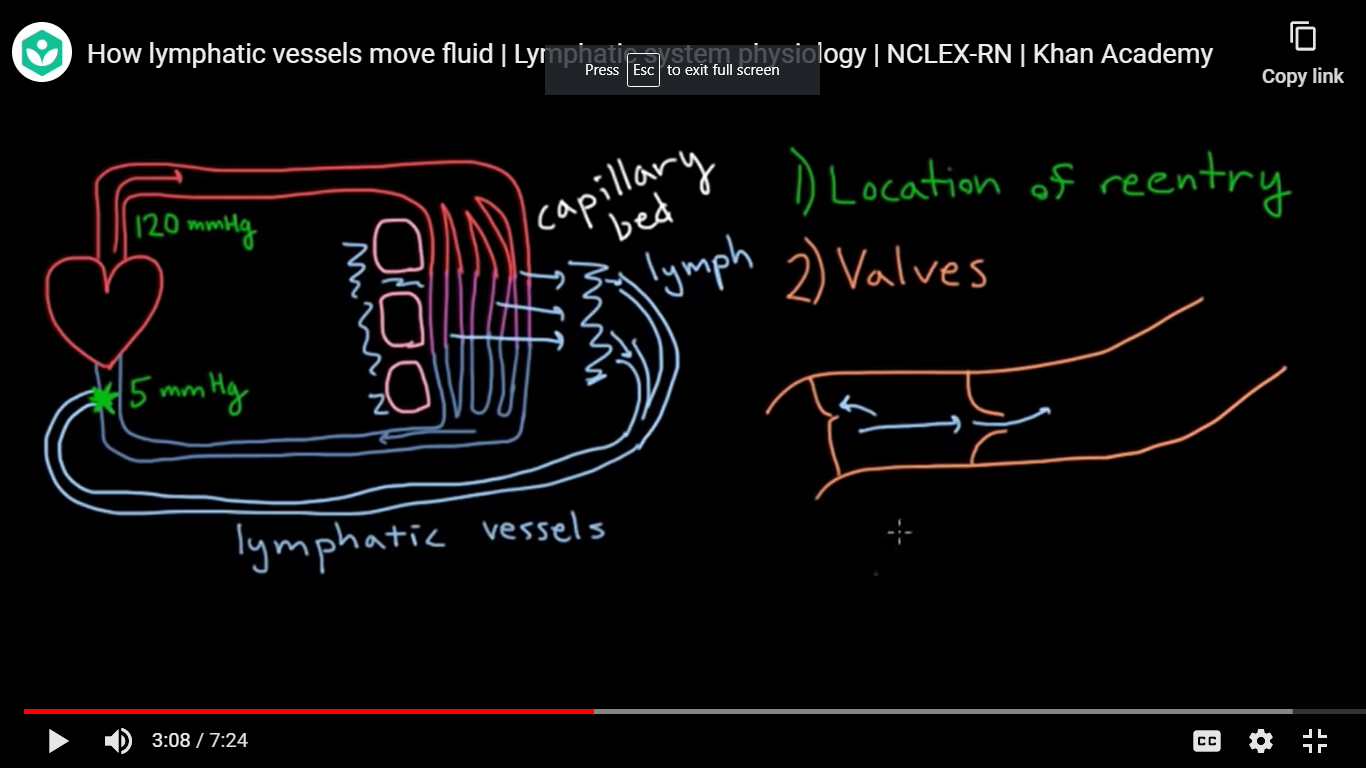 How lymphatic vessels move fluid | Lymphatic system physiology | NCLEX-RN | Khan Academy
Press Esc to exit full screen
Copy link
120 mmHg
capillary
bed
lymph
5 mmHg
lymphatic vessels
1) Location of reentry
2) Valves
3:08 / 7:24
CC